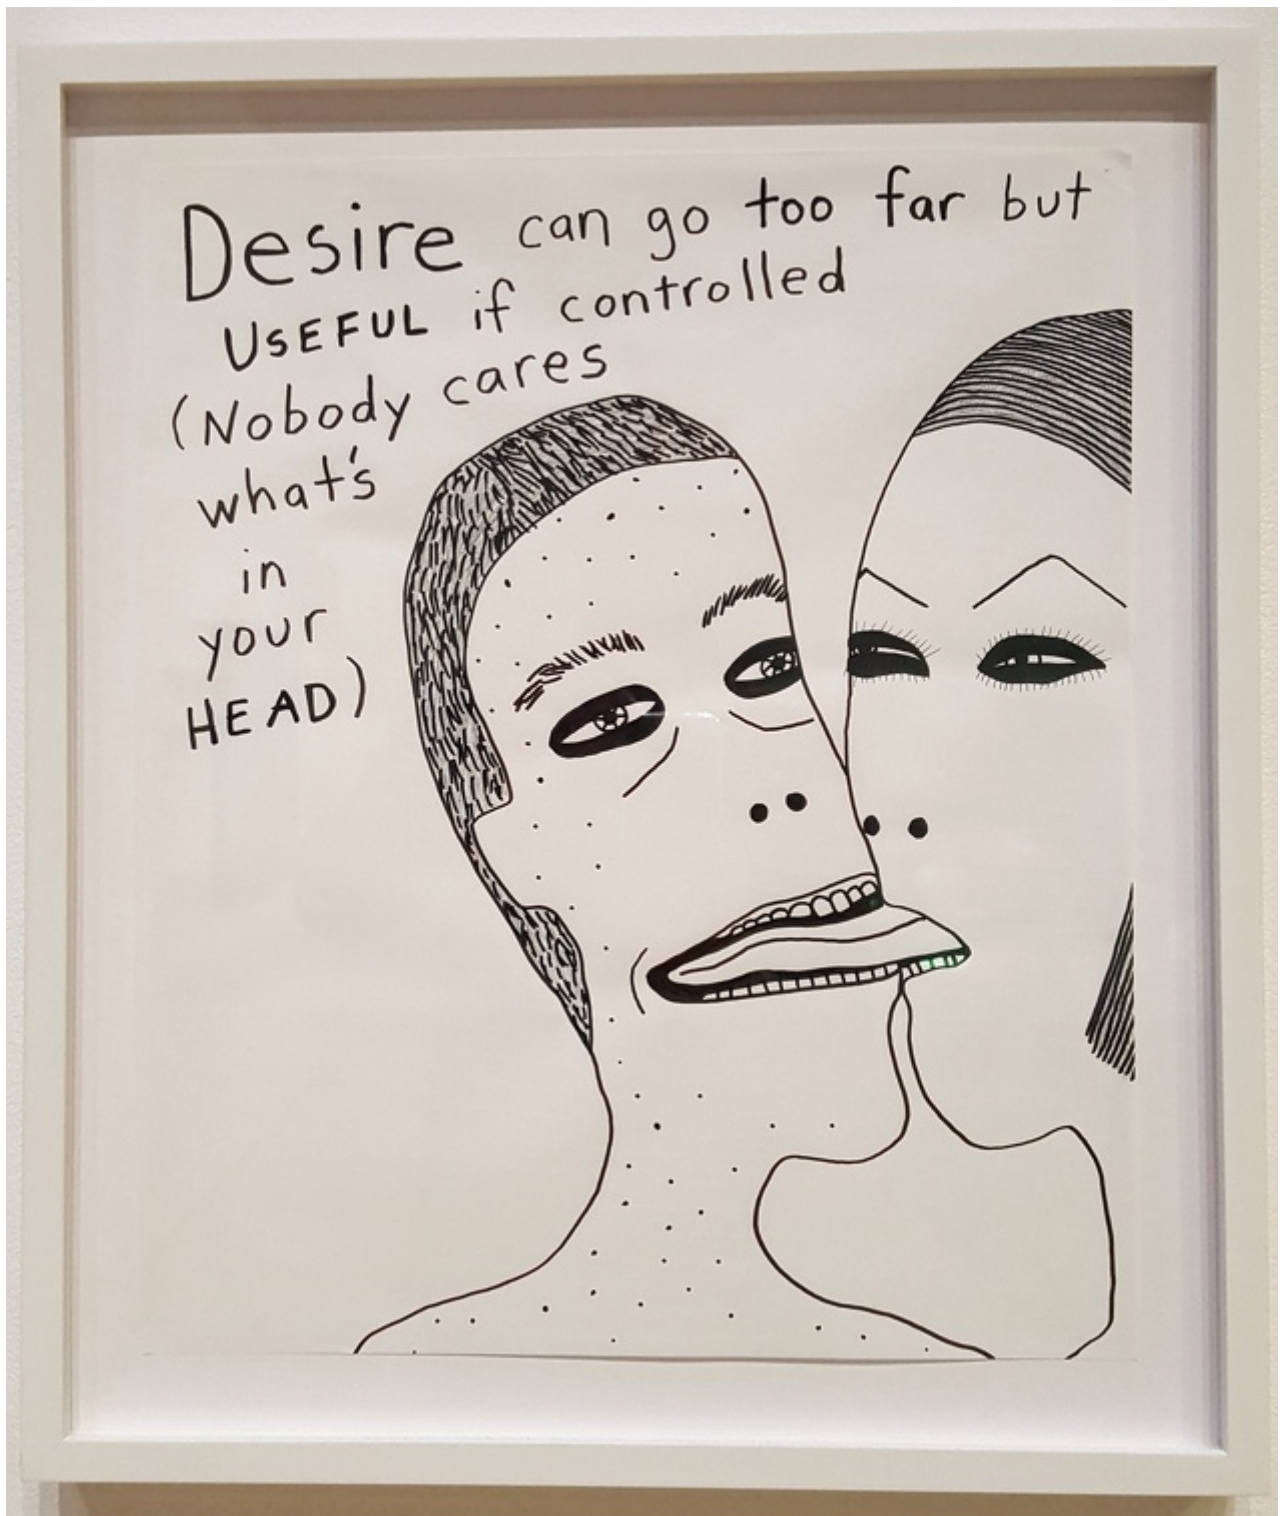 Desire can go too far but
USEFUL if controlled
(Nobody cares
what's
in
your
HEAD)